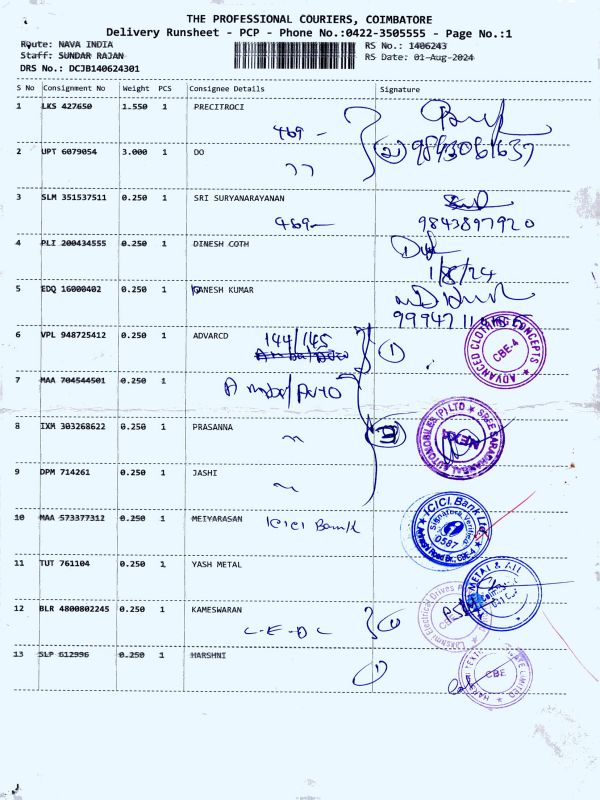 THE PROFESSIONAL COURIERS, COIMBATORE
Delivery Runsheet - PCP - Phone No.:0422-3505555 - Page No.:1
Route: NAVA INDIA
RS No.: 1406243
Staff: SUNDAR RAJAN
RS Date: 01-Aug-2024
DRS No.: DCJB140624301
S No Consignment No Weight PCS Consignee Details Signature
1 LKS 427650 1.550 1 PRECITROCI
469 -
2 UPT 6079054 3.000 1 DO
(2) 9843061637
3 SLM 351537511 0.250 1 SRI SURYANARAYANAN
469- 9843897920
4 PLI 200434555 0.250 1 DINESH COTH
1/8/24
5 EDQ 16000402 0.250 1 GANESH KUMAR
6 VPL 948725412 0.250 1 ADVARCD 144/145
ADVANCED CLOTHING CONCEPTS CBE-4
7 MAA 704544501 0.250 1
Ambal Auto
8 IXM 303268622 0.250 1 PRASANNA
SREE SARADHAMBAL AUTOMOBILES (P) LTD NEXA
9 DPM 714261 0.250 1 JASHI
10 MAA 573377312 0.250 1 MEIYARASAN ICICI Bank
ICICI Bank Ltd. Signature Verified 0587
11 TUT 761104 0.250 1 YASH METAL
METAL &
12 BLR 4800802245 0.250 1 KAMESWARAN
L-E-D-C (1)
Lakshmi Electrical Drives
13 SLP 612996 0.250 1 HARSHNI
CBE